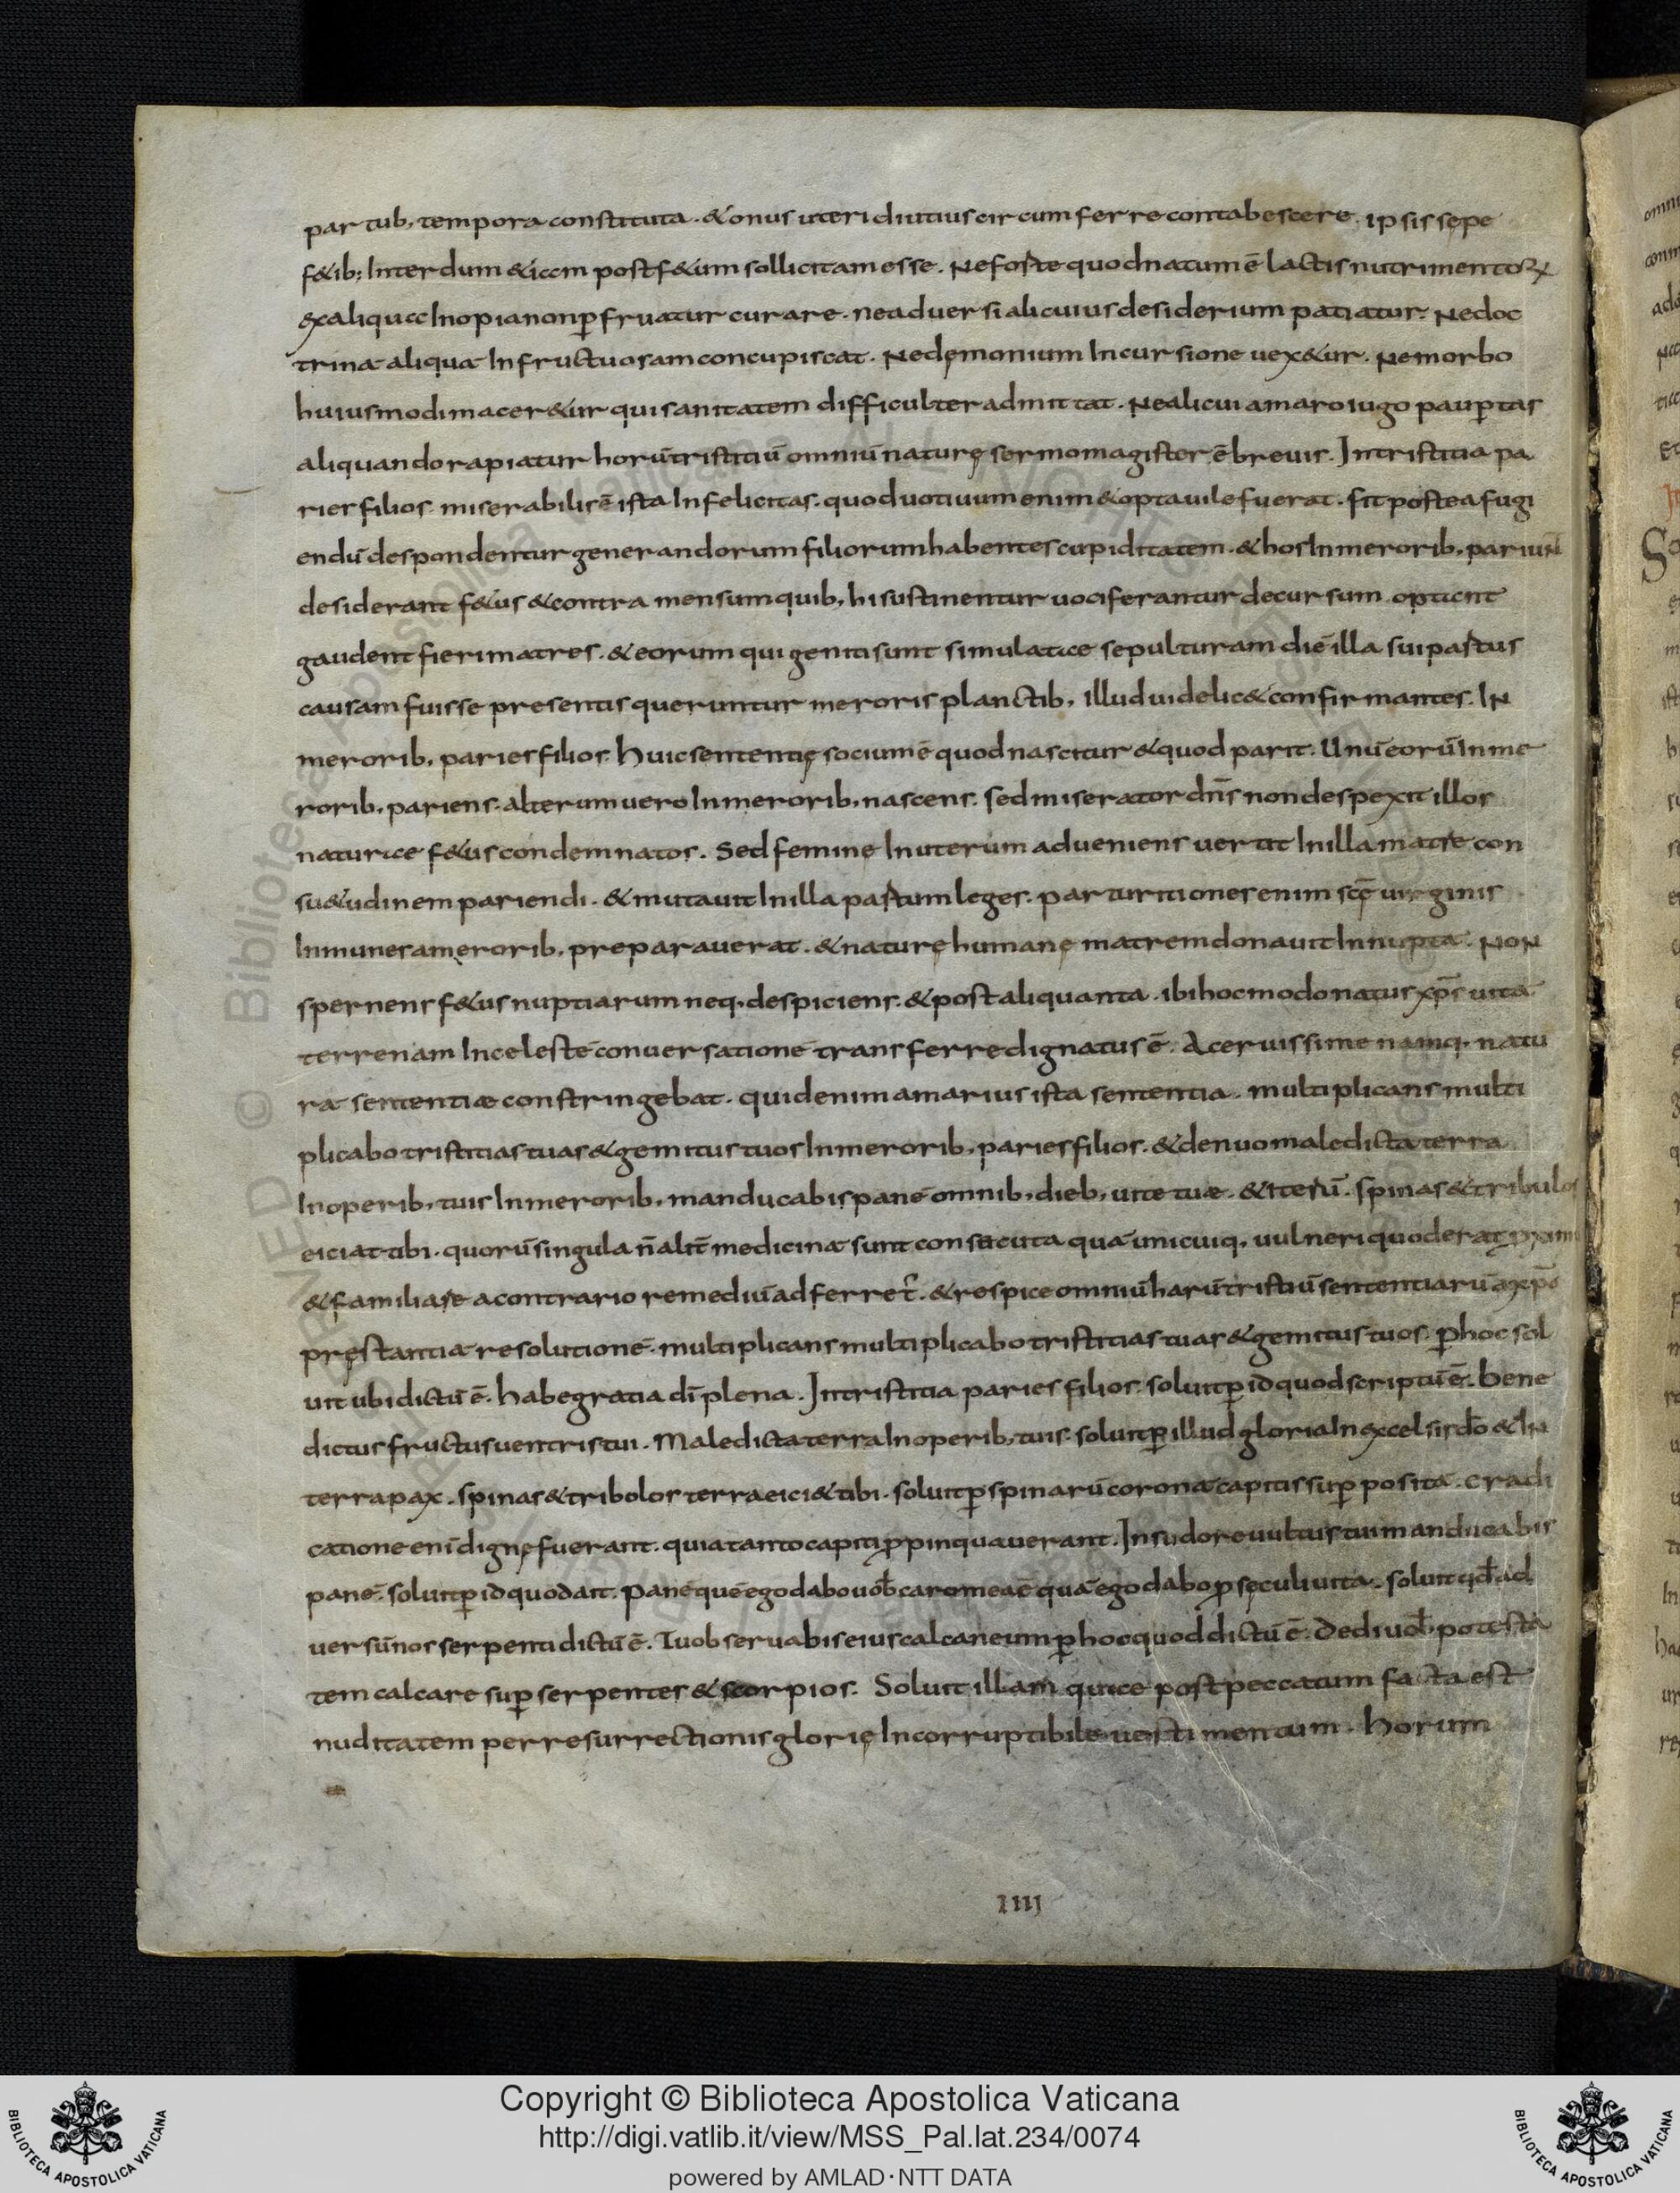 partub, tempora constituta. & onus uteri diutius circumferre contabescere. ipsis sepe
f&ib; Interdum &iam post f&um sollicitam esse. Ne forte quod natum ē lactis nutrimentoꝝ
ex aliqua Inopia non ꝑfruatur curare. ne aduersi alicuius desiderium patiatur. Ne doc
trina aliqua Infructuosam concupiscat. Ne demonium Incursione uex&ur. Ne morbo
huiusmodi macer&ur qui sanitatem difficulter admittat. Ne alicui amaro iugo pauꝑtas
aliquando rapiatur horū tristitiū omniū naturę sermo magister ē breuis. In tristitia pa
ries filios miserabilis ē ista Infelicitas. quod uotiuum enim & optauile fuerat. fit postea fugi
endū despondentur generandorum filiorum habentes cupiditatem. & hos In merorib, pariunt
desiderant f&us & contra mensum quib, hi sustinentur uociferantur decursum optant
gaudent fieri matres. & eorum qui geniti sunt simulatae sepulturam diē illa sui partus
causam fuisse presentis queruntur meroris planctib, illud uidelic& confirmantes. IN
merorib, paries filios. huic sententię socium ē quod nascitur & quod parit. Unū eorū In me
rorib, pariens. alterum uero In merorib, nascens. sed miserator dn̄s non despexit illos
naturae f&us condemnatos. Sed feminę In uterum adueniens uertit In illa matre con
su&udinem pariendi. & mutauit In illa partum leges. parturitiones enim scē uirginis
Inmunes a merorib, preparauerat. & naturę humanę matrem donauit Innupta. NoN
spernens f&us nuptiarum neq, despiciens. & post aliquanta ibi hoc modo natus xp̄s uitā
terrenam In celestē conuersationē transferre dignatus ē. Aceruissime namq, natu
ra sententiæ constringebat. quid enim amarius ista sententia. multiplicans multi
plicabo tristitias tuas & gemitus tuos In merorib, paries filios. & denuo maledicta terra
In operib, tuis In merorib, manducabis panē omnib, dieb, uite tuæ. & iterū. spinas & tribulos
eiciat tibi. quorū singula n̄ alit̄ medicina sunt consecuta quā unicuiq, uulneri quod erat
& familiare a contrario remediū adferret̄. & respice omniū harū tristiū sententiarū a xp̄o
pręstantia resolutionē. multiplicans multiplicabo tristitias tuas & gemitus tuos. ꝑ hoc sol
uit ubi dictū ē. habe gratia dī plena. In tristitia paries filios. soluit ꝑ id quod scriptū ē. bene
dictus fructus uentris tui. Maledicta terra In operib, tuis. soluit ꝑ illud gloria In excelsis dō & In
terra pax. spinas & tribolos terra eici& tibi. soluit ꝑ spinarū corona capitis suꝑposita. eradi
catione enī dignę fuerant. quia tanto capiti ꝓpinquauerant. In sudore uultus tui manducabis
panē. soluit ꝑ id quod ait. Panē quē ego dabo uob̄ caro mea ē quā ego dabo ꝓ sęculi uita. soluit qd̄ ad
uersū nos serpenti dictū ē. Tu obseruabis eius calcaneum ꝑ hoc quod dictū ē. Dedi uob̄, potesta
tem calcare suꝑ serpentes & scorpios. Soluit illam quae post peccatum facta est
nuditatem per resurrectionis glorię Incorruptibile uestimentum. horum
IIII
Copyright © Biblioteca Apostolica Vaticana
http://digi.vatlib.it/view/MSS_Pal.lat.234/0074
powered by AMLAD·NTT DATA
BIBLIOTECA APOSTOLICA VATICANA
BIBLIOTECA APOSTOLICA VATICANA